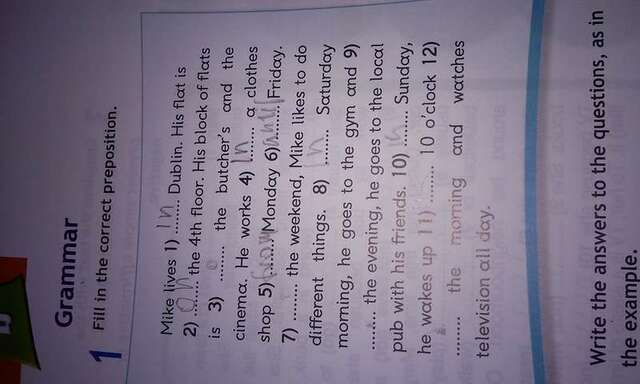 Grammar
1 Fill in the correct preposition.
Mike lives 1) In Dublin. His flat is
2) On the 4th floor. His block of flats
is 3) ........ the butcher's and the
cinema. He works 4) In a clothes
shop 5) from Monday 6) ........ Friday.
7) ........ the weekend, Mike likes to do
different things. 8) In Saturday
morning, he goes to the gym and 9)
........ the evening, he goes to the local
pub with his friends. 10) ........ Sunday,
he wakes up 11) ........ 10 o'clock 12)
........ the morning and watches
television all day.
Write the answers to the questions, as in
the example.